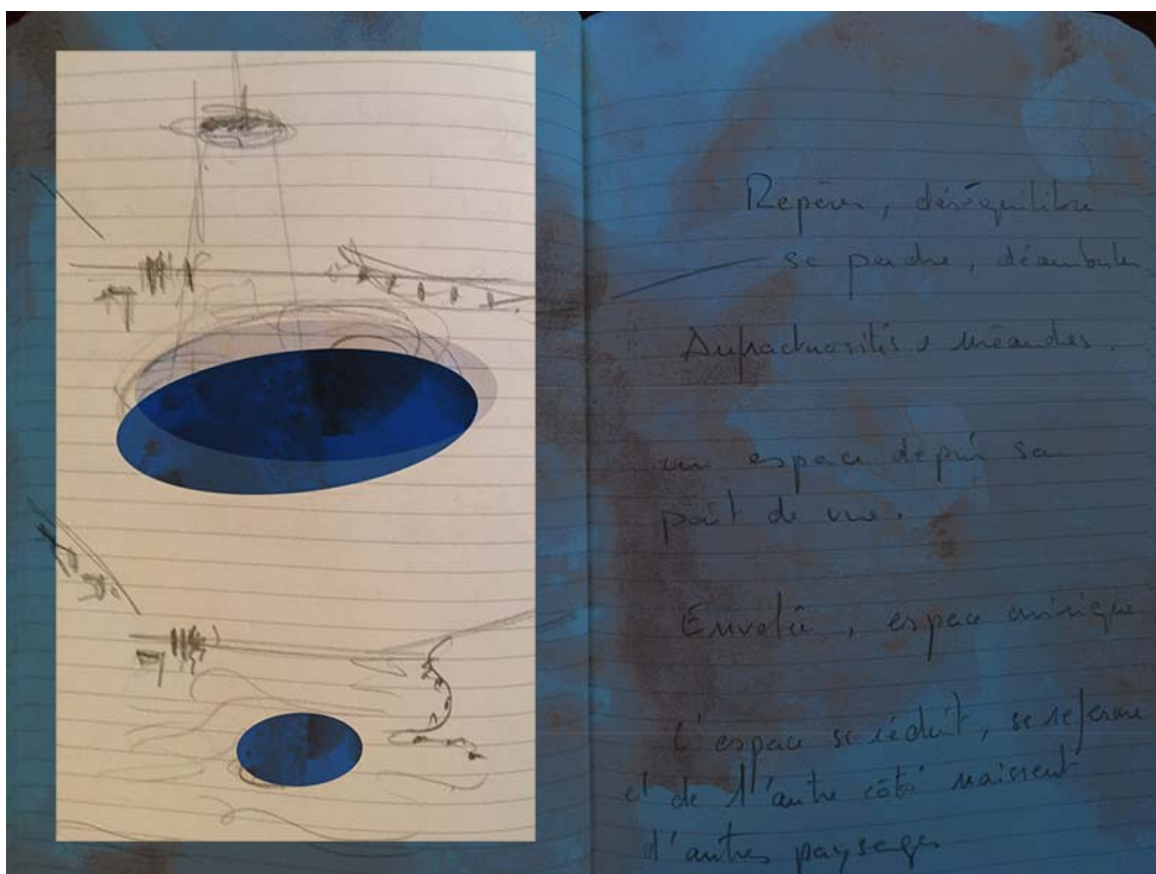 Repères, déséquilibre
se perdre, déambuler
Anfractuosités & méandres.
un espace depuis son
point de vue.
Envolée, espace onirique
L'espace se réduit, se referme
et de l'autre côté naissent
d'autres paysages